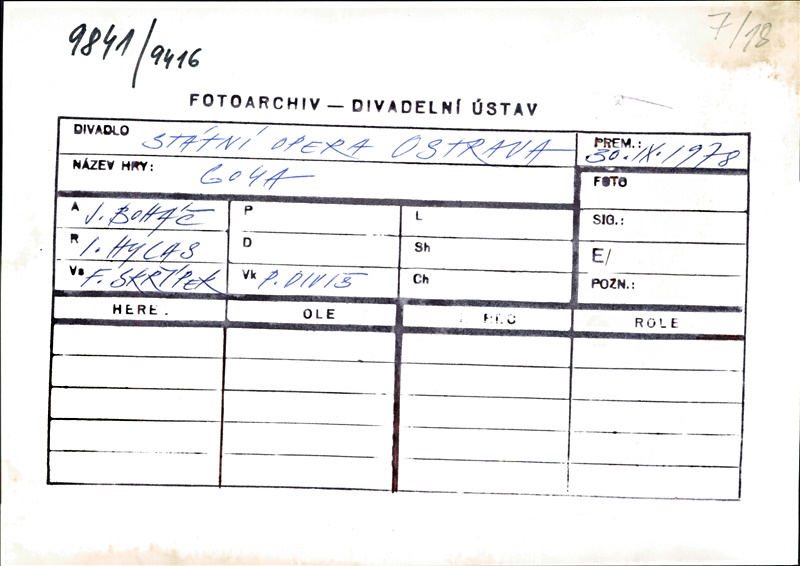 9841/9416
7/18
FOTOARCHIV — DIVADELNÍ ÚSTAV
DIVADLO STÁTNÍ OPERA OSTRAVA
PREM.: 30.IX.1978
NÁZEV HRY: GOYA
FOTO
A J. BOHÁČ P L
SIG.:
R I. HYLAS D Sh
E/
Vs F. SKŘÍPEK Vk P. DIVIŠ Ch
POZN.:
HERE . OLE REC ROLE